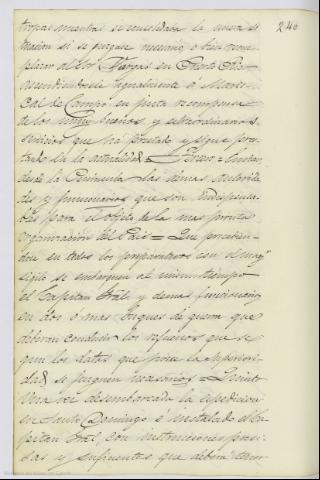 240
tropas mientras se consolidaba la nueva si
tuacion si se juzgase necesario o bien reem
plazar al Sor Vargas en Puerto Rico
ascendiendole igualmente á Maris
cal de Campo en justa recompensa
de los muy buenos y extraordinarios
servicios que há prestado y sigue pres
tando en la actualidad = = Enviar
desde la Peninsula las demas autorida
des y funcionarios que son indispensa
bles para el objeto de la mas pronta
organizacion del Pais = Que procedien
dose en todos los preparativos con el mayor
sigilo se embarquen al mismo tiempo
el Capitan Gral y demas funcionarios
en dos o mas buques de guerra que
deberan conducir los refuerzos que se
gun los datos que posea la Superiori
dad se juzguen necesarios = Quinto
Una vez desembarcada la expedicion
en Santo Domingo é instalado el Ca
pitan Gral, con instrucciones preci
sas y suficientes que deberá tener